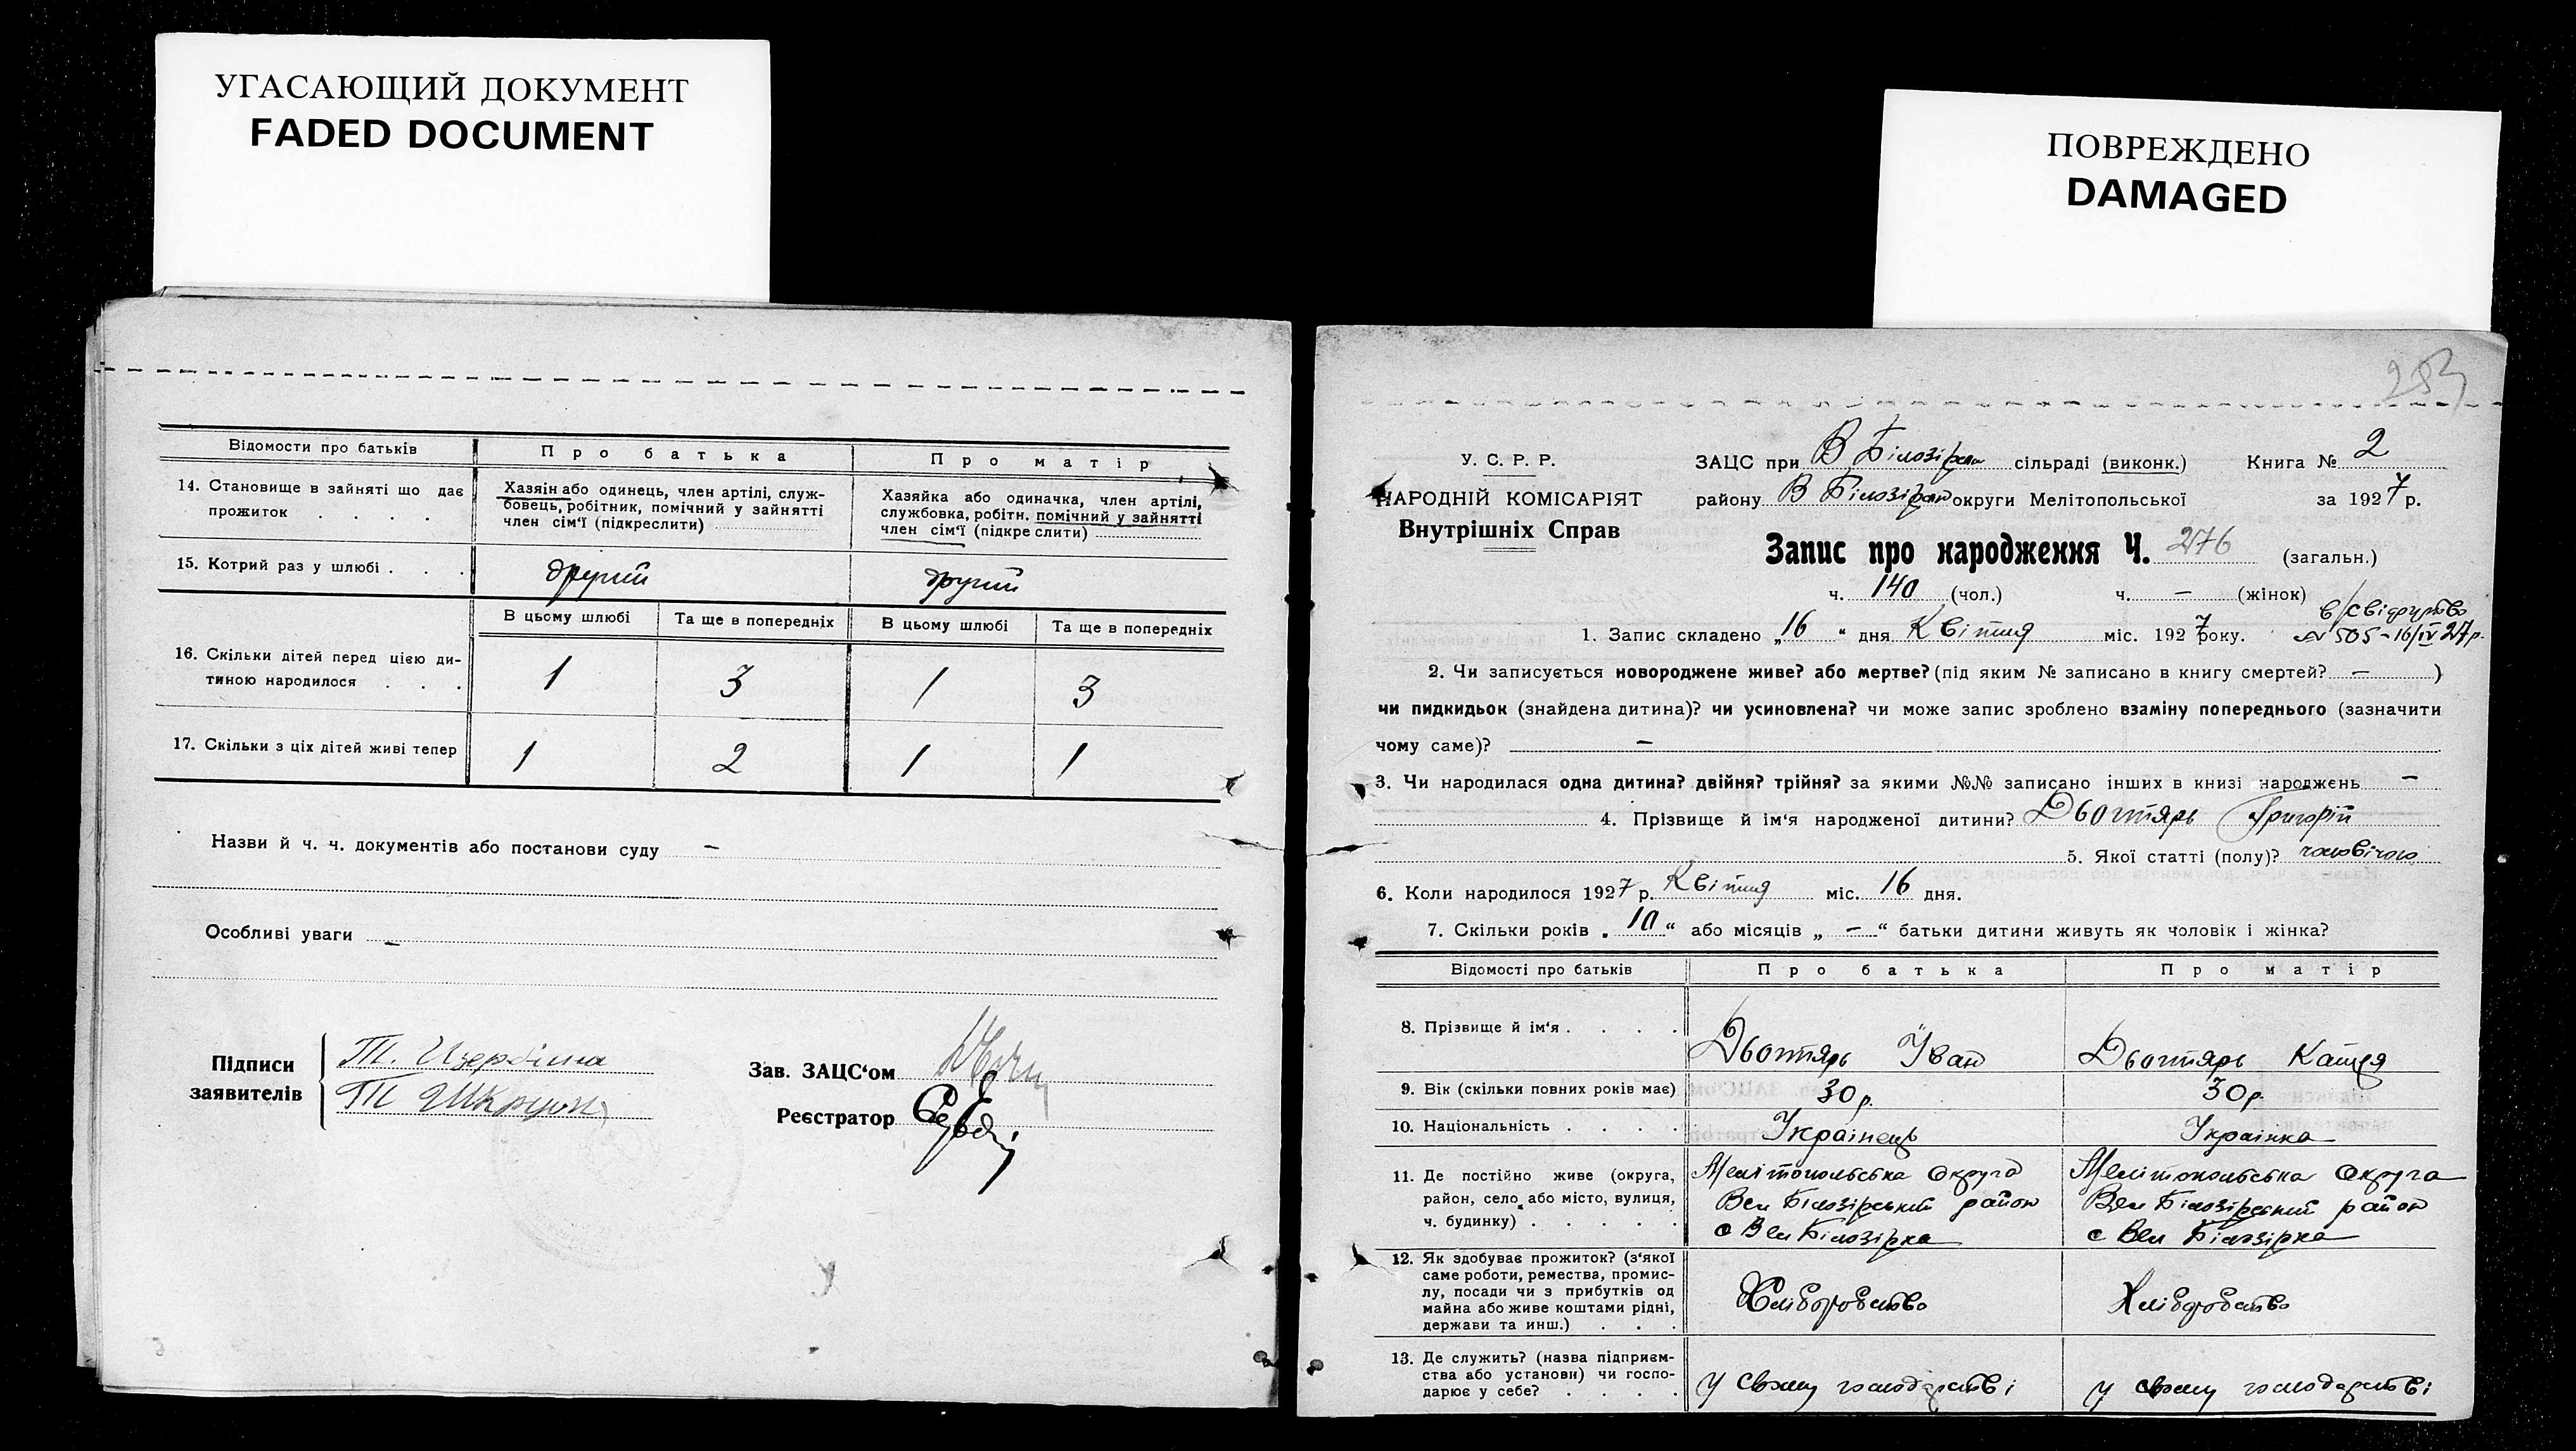 УГАСАЮЩИЙ ДОКУМЕНТ
FADED DOCUMENT
ПОВРЕЖДЕНО
DAMAGED
Відомости про батьків Про батька Про матір
14. Становище в зайняті що дає
прожиток . . . .
Хазяін або одинець, член артілі, служ-
бовець, робітник, помічний у зайнятті
член сім'ї (підкреслити)
Хазяйка або одиначка, член артілі,
службовка, робітн. помічний у зайнятті
член сім'ї (підкре слити)
15. Котрий раз у шлюбі . . . другий другий
В цьому шлюбі Та ще в попередніх В цьому шлюбі Та ще в попередніх
16. Скільки дітей перед цією ди-
тиною народилося . . . 1 3 1 3
17. Скільки з ціх дітей живі тепер 1 2 1 1
Назви й ч. ч. документів або постанови суду —
Особливі уваги —
Підписи
заявителів
Зав. ЗАЦС'ом
Реєстратор
253
У. С. Р. Р.
НАРОДНІЙ КОМІСАРІЯТ
Внутрішніх Справ
ЗАЦС при В Білозірськ сільраді (виконк.) Книга № 2
району В Білозірськ округи Мелітопольської за 1927 р.
Запис про народження Ч. 276 (загальн.)
ч. 140 (чол.) ч. — (жінок)
в/свідоцтво
№ 505 - 16/IV 27 р.
1. Запис складено „16" дня Квітня міс. 1927 року.
2. Чи записується новороджене живе? або мертве? (під яким № записано в книгу смертей? — )
чи пидкидьок (знайдена дитина)? чи усиновлена? чи може запис зроблено взаміну попереднього (зазначити
чому саме)? —
3. Чи народилася одна дитина? двійня? трійня? за якими №№ записано інших в книзі народжень —
4. Прізвище й ім'я народженої дитини? Двоттярь Григорій
5. Якої статті (полу)? чоловічого
6. Коли народилося 1927 р. Квітня міс. 16 дня.
7. Скільки років „10" або місяців „—" батьки дитини живуть як чоловік і жінка?
Відомості про батьків Про батька Про матір
8. Прізвище й ім'я . . . . Двоттярь Іван Двоттярь Катря
9. Вік (скільки повних років має) 30 р. 30 р.
10. Національність . . . . Українець Українка
11. Де постійно живе (округа,
район, село або місто, вулиця,
ч. будинку) . . . . .
Мелітопольська Округа
Вел Білозірський район
с Вел Білозірка
Мелітопольська Округа
Вел Білозірський район
с Вел Білозірка
12. Як здобуває прожиток? (з'якої
саме роботи, ремества, промис-
лу, посади чи з прибутків од
майна або живе коштами рідні,
держави та инш.) . . .
Хліборобство Хліборобство
13. Де служить? (назва підприєм-
ства або установи) чи госпо-
дарює у себе? . . . .
у своему господарстві у своему господарстві